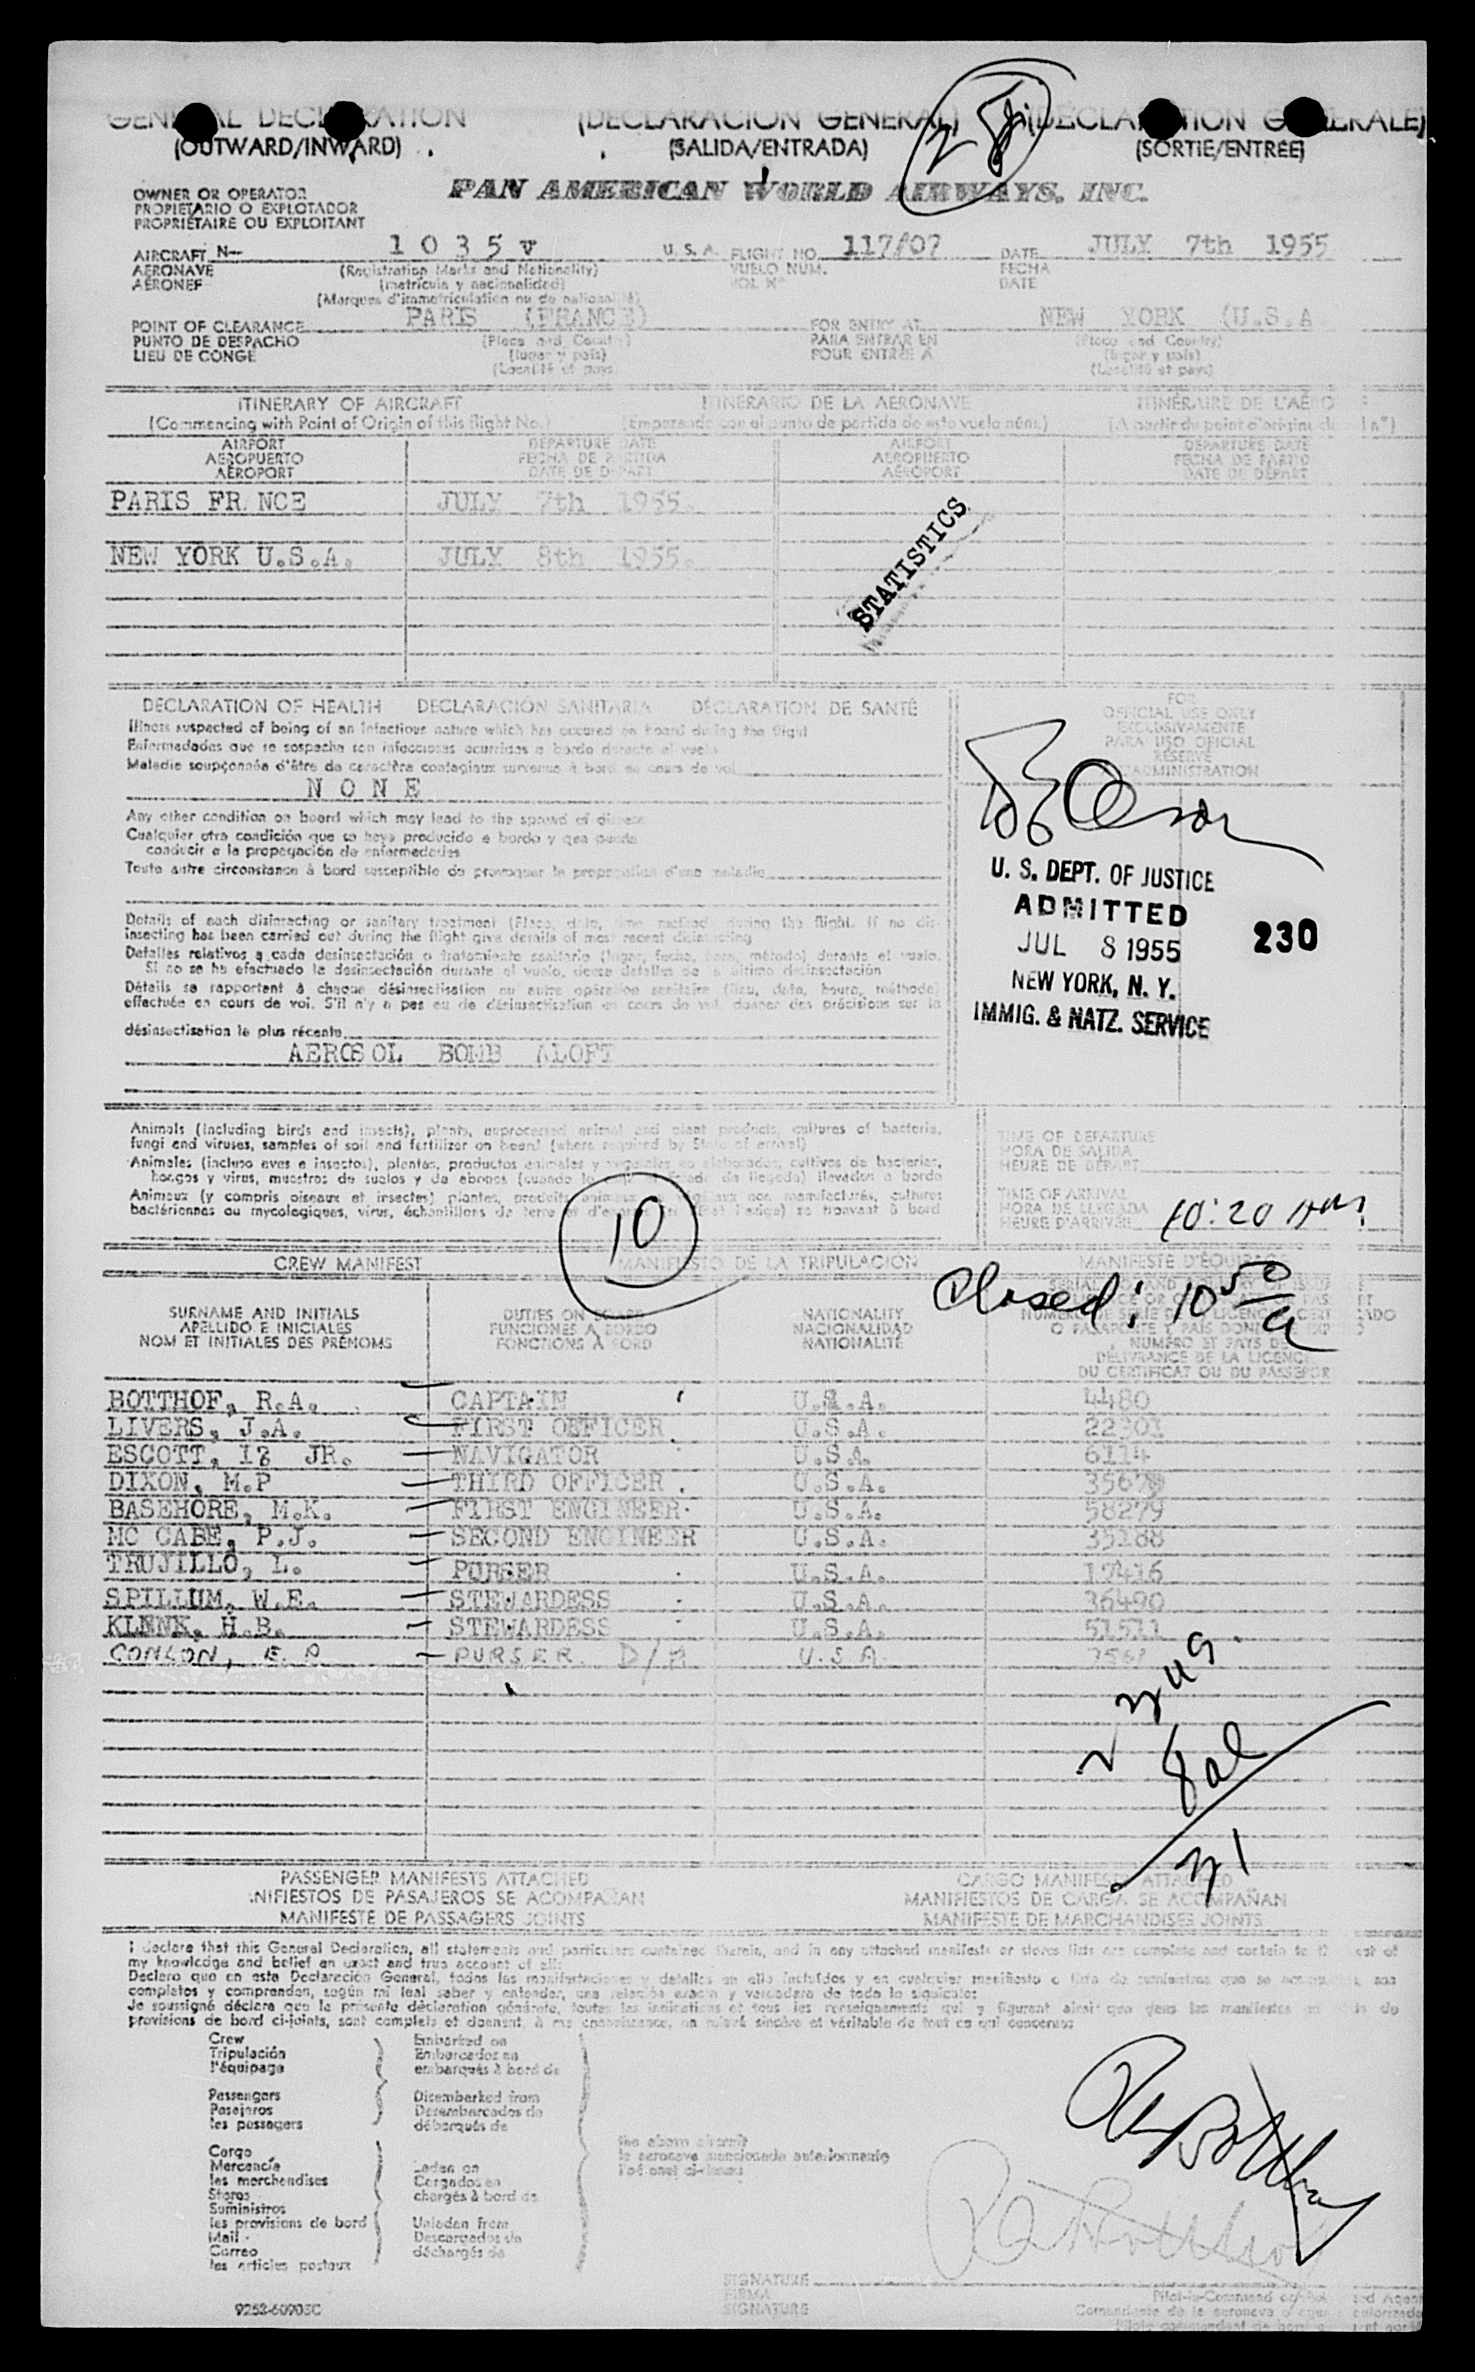 GENERAL DECLARATION (DECLARACION GENERAL) (DECLARATION GENERALE)
(OUTWARD/INWARD) (SALIDA/ENTRADA) (SORTIE/ENTRÉE)
OWNER OR OPERATOR PAN AMERICAN WORLD AIRWAYS, INC.
PROPIETARIO O EXPLOTADOR
PROPRIÉTAIRE OU EXPLOITANT
AIRCRAFT N- 1035v U.S.A. FLIGHT NO. 117/07 DATE JULY 7th 1955
AERONAVE (Registration Marks and Nationality) VUELO NUM. FECHA
AÉRONEF (matrícula y nacionalidad) VOL Nº DATE
(Marques d'immatriculation ou de nationalité)
POINT OF CLEARANCE PARIS (FRANCE) FOR ENTRY AT NEW YORK (U.S.A
PUNTO DE DESPACHO (Place and Country) PARA ENTRAR EN (Place and Country)
LIEU DE CONGÉ (lugar y país) POUR ENTRÉE À (lugar y país)
(Localité et pays) (Localité et pays)
ITINERARY OF AIRCRAFT ITINERARIO DE LA AERONAVE ITINÉRAIRE DE L'AÉRO
(Commencing with Point of Origin of this flight No.) (Empezando con el punto de partida de este vuelo núm.) (A partir du point d'origine
AIRPORT DEPARTURE DATE AIRPORT DEPARTURE DATE
AEROPUERTO FECHA DE PARTIDA AEROPUERTO FECHA DE PARTID
AÉROPORT DATE DE DÉPART AÉROPORT DATE DE DÉPART
PARIS FR NCE JULY 7th 1955.
NEW YORK U.S.A. JULY 8th 1955.
STATISTICS
DECLARATION OF HEALTH DECLARACIÓN SANITARIA DÉCLARATION DE SANTÉ
FOR
OFFICIAL USE ONLY
EXCLUSIVAMENTE
PARA USO OFICIAL
RÉSERVÉ
ADMINISTRATION
Illness suspected of being of an infectious nature which has occured on board during the flight
Enfermedades que se sospecha son infecciosas ocurridas a bordo durante el vuelo
Maladie soupçonnée d'être de caractère contagieux survenue à bord au cours de vol
NONE
Any other condition on board which may lead to the spread of disease
Cualquier otra condición que se haya producido a bordo y que pueda
conducir a la propagación de enfermedades
Toute autre circonstance à bord susceptible de provoquer la propagation d'une maladie
U. S. DEPT. OF JUSTICE
ADMITTED
JUL 8 1955
NEW YORK, N. Y.
IMMIG. & NATZ. SERVICE
230
Details of each disinsecting or sanitary treatment (Place, date, time, method) during the flight. If no dis-
insecting has been carried out during the flight give details of most recent disinsecting
Detalles relativos a cada desinsectación o tratamiento sanitario (lugar, fecha, hora, método) durante el vuelo.
Si no se ha efectuado la desinsectación durante el vuelo, dense detalles de la última desinsectación
Détails se rapportant à chaque désinsectisation ou autre opération sanitaire (lieu, date, heure, méthode)
effectuée en cours de vol. S'il n'y a pas eu de désinsectisation en cours de vol, donner des précisions sur la
désinsectisation le plus récente
AEROSOL BOMB ALOFT
Animals (including birds and insects), plants, unprocessed animal and plant products, cultures of bacteria,
fungi and viruses, samples of soil and fertilizer on board (where required by State of arrival)
Animales (incluso aves e insectos), plantas, productos animales y vegetales no elaborados, cultivos de bacterias,
hongos y virus, muestras de suelos y de abonos (cuando lo Estado de llegada) llevados a bordo
Animaux (y compris oiseaux et insectes) plantes, produits animaux non manufacturés, cultures
bactériennes ou mycologiques, virus, échantillons de terre et d'engrais se trouvant à bord
TIME OF DEPARTURE
HORA DE SALIDA
HEURE DE DÉPART
TIME OF ARRIVAL
HORA DE LLEGADA
HEURE D'ARRIVÉE 10:20
10
CREW MANIFEST MANIFIESTO DE LA TRIPULACION MANIFESTE D'ÉQUIPAGE
Closed: 10 50 a
SURNAME AND INITIALS DUTIES ON BOARD NATIONALITY
APELLIDO E INICIALES FUNCIONES A BORDO NACIONALIDAD
NOM ET INITIALES DES PRÉNOMS FONCTIONS À BORD NATIONALITÉ
NUMÉRO ET PAYS DE
DÉLIVRANCE DE LA LICENCE
DU CERTIFICAT OU DU PASSEPOR
BOTTHOF, R.A. CAPTAIN U.S.A. 4480
LIVERS, J.A. FIRST OFFICER U.S.A. 22301
ESCOTT, I? JR. NAVIGATOR U.S.A. 6114
DIXON, M.P THIRD OFFICER U.S.A.
BASEHORE, M.K. FIRST ENGINEER U.S.A. 58279
MC CABE, P.J. SECOND ENGINEER U.S.A. 35188
TRUJILLO, L. PURSER U.S.A. 17416
SPILLUM, W.E. STEWARDESS U.S.A. 36490
KLENK, H.B. STEWARDESS U.S.A. 51511
CONLON, E. PURSER U.S.A.
PASSENGER MANIFESTS ATTACHED CARGO MANIFESTS ATTACHED
NIFIESTOS DE PASAJEROS SE ACOMPAÑAN MANIFIESTOS DE CARGA SE ACOMPAÑAN
MANIFESTE DE PASSAGERS JOINTS MANIFESTE DE MARCHANDISES JOINTS
I declare that this General Declaration, all statements and particulars contained therein, and in any attached manifests or stores lists are complete and contain to
my knowledge and belief an exact and true account of all:
Declaro que en esta Declaración General, todas las manifestaciones y detalles en ella incluídos y en cualquier manifiesto o lista de suministros que se
completos y comprenden, según mi leal saber y entender, una relación exacta y verdadera de todo lo siguiente:
Je soussigné déclare que la présente déclaration générale, toutes les indications et tous les renseignements qui y figurent ainsi que dans les manifestes
provisions de bord ci-joints, sont complets et donnent, à ma connaissance, un relevé sincère et véritable de tout ce qui concerne:
Crew Embarked on
Tripulación Embarcados en
l'équipage embarqués à bord de
Passengers Disembarked from
Pasajeros Desembarcados de
les passagers débarqués de
the above aircraft
la aeronave mencionada anteriormente
Cargo
Mercancía Laden on
les marchandises Cargados en
Stores chargés à bord de
Suministros
les provisions de bord Unladen from
Mail Descargados de
Correo déchargés de
les articles postaux
SIGNATURE
FIRMA
SIGNATURE
Pilot-in-Command
9252-60903C